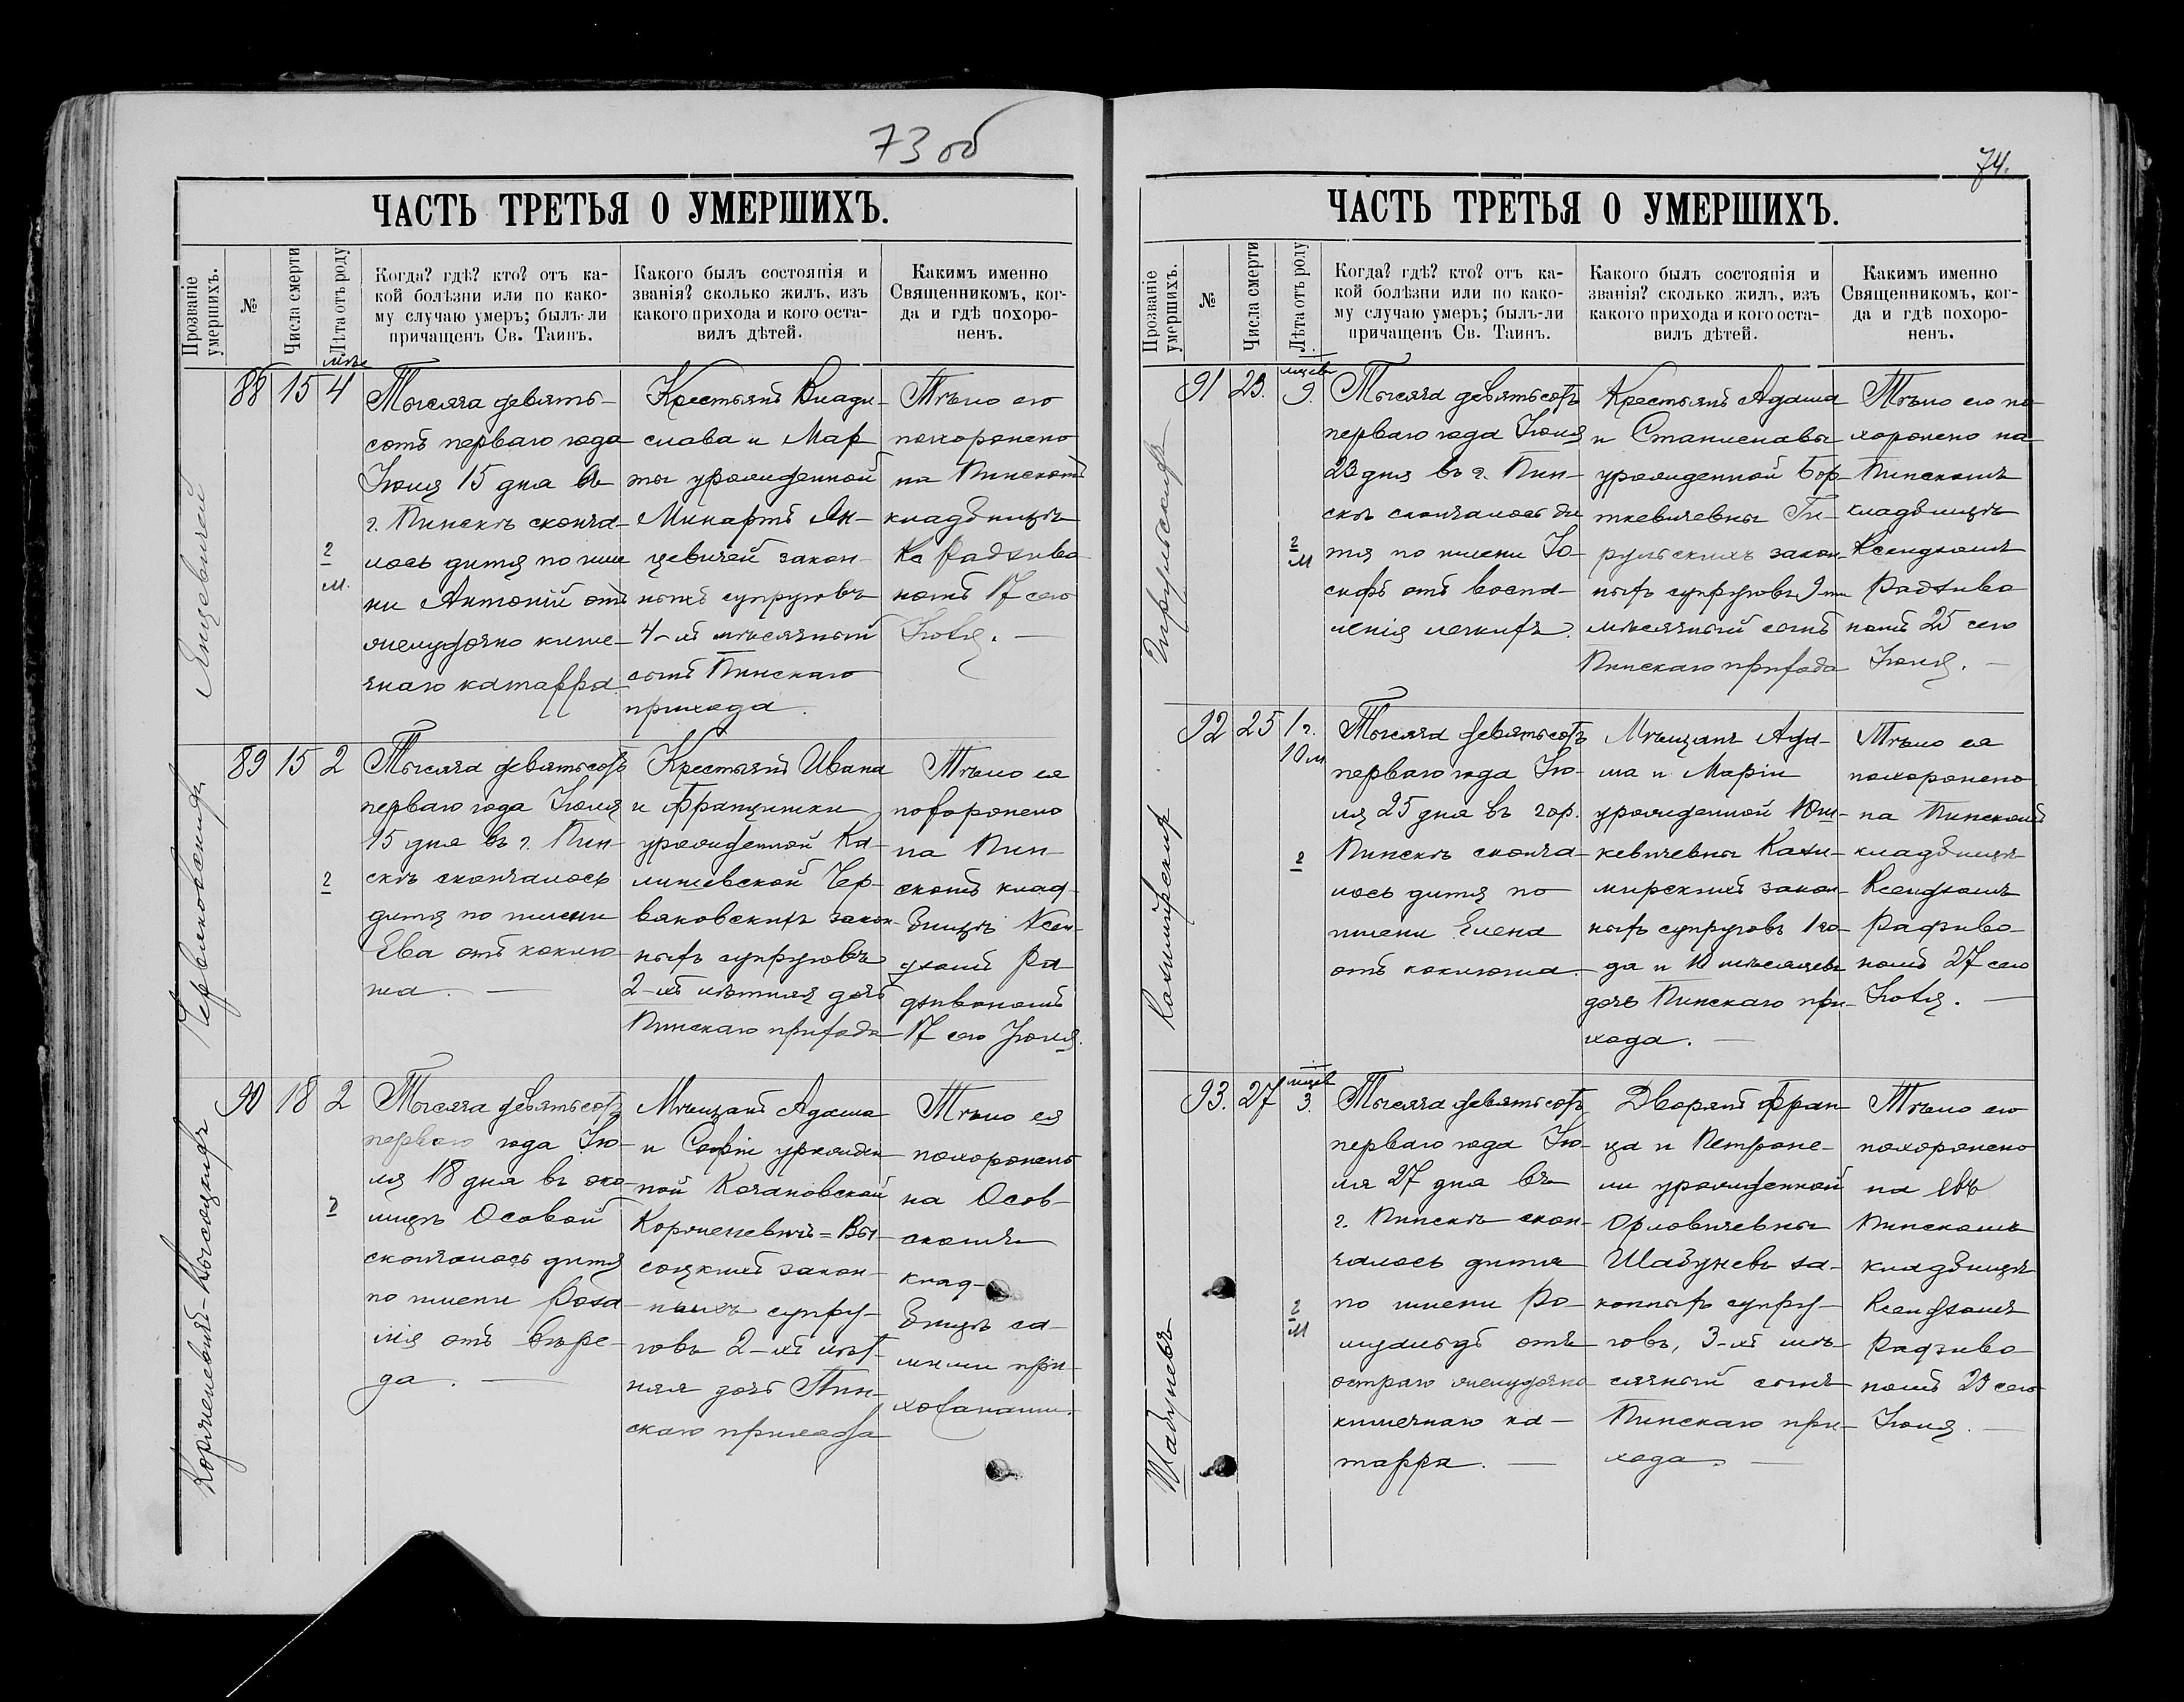 73 об
ЧАСТЬ ТРЕТЬЯ О УМЕРШИХЪ.
Прозваніе умершихъ.
№
Числа смерти
Лѣта отъ роду
Когда? гдѣ? кто? отъ ка-
кой болѣзни или по како-
му случаю умеръ; былъ-ли
причащенъ Св. Таинъ.
Какого былъ состоянія и
званія? сколько жилъ, изъ
какого прихода и кого оста-
вилъ дѣтей.
Какимъ именно
Священникомъ, ког-
да и гдѣ похоро-
ненъ.
Янцевичей
88
15
4
2
м.
Тысяча девять-
сотъ перваго года
Іюля 15 дня въ
г. Пинскѣ сконча-
лось дитя по име
ни Антоній отъ
желудочно кише-
чнаго катарра
Крестьянъ Влади-
слава и Мар
ты урожденной
Ян-
цевичей закон-
ныхъ супруговъ
4-хъ мѣсячный
сынъ Пинскаго
прихода.
Тѣло его
похоронено
на Пинскомъ
кладбищѣ
Кс Радзиво
номъ 17 сего
Іюля. —
Червяковскихъ
89
15
2
2
Тысяча девятьсотъ
перваго года Іюля
15 дня въ г. Пин-
скѣ скончалось
дитя по имени
Ева отъ коклю-
ша. —
Крестьянъ Ивана
и Францишки
урожденной Ка-
лишевской Чер-
вяковскихъ закон-
ныхъ супруговъ
2-хъ лѣтняя дочь
Пинскаго прихода
Тѣло ея
похоронено
на Пин-
скомъ клад-
бищѣ Ксен-
дзомъ Ра-
дзивономъ
17 сего Іюля.
Корженевичъ-Высоцкихъ
90
18
2
2
Тысяча девятьсотъ
перваго года Ію-
ля 18 дня въ око-
лицѣ Осовой
скончалось дитя
по имени Роза-
лія отъ
да. —
Мѣщанъ Адама
и Софіи урожден
ной Кочановской
Корженевичъ=Вы-
соцкихъ закон-
ныхъ супру-
говъ 2-хъ лѣт-
няя дочь Пин-
скаго прихода
Тѣло ея
похоронено
на Осов-
скомъ
клад-
бищѣ са-
мими при-
хожанами.
74.
ЧАСТЬ ТРЕТЬЯ О УМЕРШИХЪ.
Прозваніе умершихъ.
№
Числа смерти
Лѣта отъ роду
Когда? гдѣ? кто? отъ ка-
кой болѣзни или по како-
му случаю умеръ; былъ-ли
причащенъ Св. Таинъ.
Какого былъ состоянія и
званія? сколько жилъ, изъ
какого прихода и кого оста-
вилъ дѣтей.
Какимъ именно
Священникомъ, ког-
да и гдѣ похоро-
ненъ.
91
23.
9.
2
м
Тысяча девятьсотъ
перваго года Іюля
23 дня въ г. Пин-
скѣ скончалось ди
тя по имени Іо-
сифъ отъ воспа-
ленія легкихъ.
Крестьянъ Адама
и Станиславы
урожденной Бор-
ткевичевны Ги-
рульскихъ закон
ныхъ супруговъ 9-ти
мѣсячный сынъ
Пинскаго прихода
Тѣло его по
хоронено на
Пинскомъ
кладбищѣ
Ксендзомъ
Радзиво
номъ 25 сего
Іюля. —
Казимірскихъ
92
25
1 г.
10 м.
2
Тысяча девятьсотъ
перваго года Ію-
ля 25 дня въ гор.
Пинскѣ сконча-
лось дитя по
имени Елена
отъ коклюша.
Мѣщанъ Ада-
ма и Маріи
урожденной Юш-
кевичевны Кази-
мирскихъ закон-
ныхъ супруговъ 1 го-
да и 10 мѣсяцевъ
дочь Пинскаго при-
хода. —
Тѣло ея
похоронено
на Пинскомъ
кладбищѣ
Ксендзомъ
Радзиво
номъ 27 сего
Іюля. —
Шабуневъ
93.
27
3.
2
м
Тысяча девятьсотъ
перваго года Ію-
ля 27 дня въ
г. Пинскѣ скон-
чалось дитя
по имени Ро-
муальдъ отъ
остраго желудочно
кишечнаго ка-
тарра. —
Дворянъ Фран
ца и Петроне-
ли урожденной
Орловичевны
Шабуневъ за-
конныхъ супру-
говъ, 3-хъ мѣ-
сячный сынъ
Пинскаго при-
хода. —
Тѣло его
похоронено
на
Пинскомъ
кладбищѣ
Ксендзомъ
Радзиво
номъ 29 сего
Іюля. —